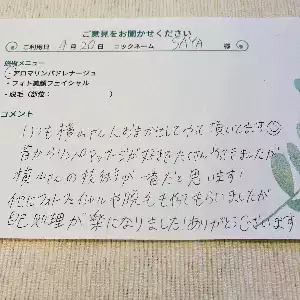 ご意見をお聞かせください
ご利用日 4月20日 ニックネーム SAYA 様
施術メニュー
・アロマリンパドレナージュ
・フォト美顔フェイシャル
・脱毛(部位: )
コメント
いつも横山さんにおまかせしてやって頂いてます☺
昔からリンパマッサージが好きでたくさん行きましたが
横山さんの技術が一番だと思います!
他にフォトフェイシャルや脱毛もやってもらいましたが
自己処理が楽になりました!ありがとうございます